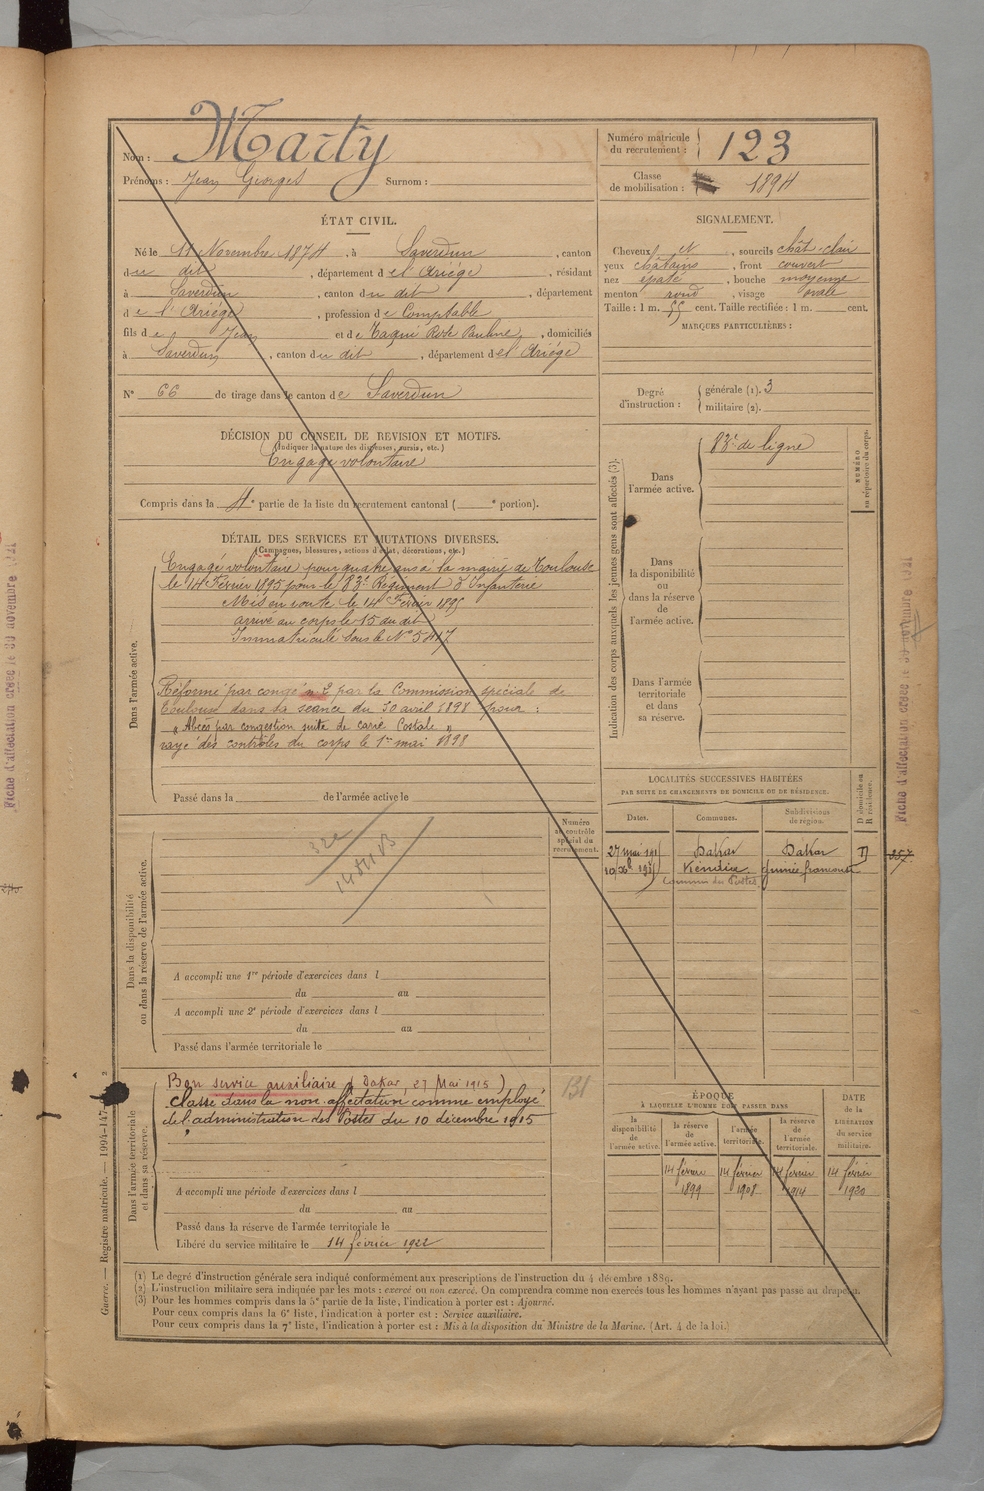 Nom : Marty
Prénoms : Jean Georges Surnom :
Numéro matricule du recrutement : 123
Classe de mobilisation : 1894
ÉTAT CIVIL.
Né le 11 Novembre 1874, à Saverdun, canton
du dit, département de l'Ariége, résidant
à Saverdun, canton du dit, département
de l'Ariége, profession de Comptable
fils de Jean et de Taqui Rose Pauline, domiciliés
à Saverdun, canton du dit, département de l'Ariége
N° 66 de tirage dans le canton de Saverdun
DÉCISION DU CONSEIL DE REVISION ET MOTIFS.
(Indiquer la nature des dispenses, sursis, etc.)
Engagé volontaire
Compris dans la 4e partie de la liste du recrutement cantonal ( e portion).
DÉTAIL DES SERVICES ET MUTATIONS DIVERSES.
(Campagnes, blessures, actions d'éclat, décorations, etc.)
Dans l'armée active.
Engagé volontaire pour quatre ans à la mairie de Toulouse
le 14 Février 1895 pour le 83e Régiment d'Infanterie
Mis en route le 14 Février 1895
arrivé au corps le 15 du dit
Immatriculé sous le N° 5417
Réformé par congé n° 2 par la Commission spéciale de
Toulouse dans sa séance du 30 avril 1898 pour :
"Abcès par congestion suite de carie Costale"
rayé des contrôles du corps le 1er mai 1898
Passé dans la de l'armée active le
Numéro au contrôle spécial du recrutement.
Dans la disponibilité
ou dans la réserve de l'armée active.
A accompli une 1re période d'exercices dans l
du au
A accompli une 2e période d'exercices dans l
du au
Passé dans l'armée territoriale le
Dans l'armée territoriale
et dans sa réserve.
Bon service auxiliaire (Dakar 27 Mai 1915)
Classé dans la non affectation comme employé
de l'administration des Postes du 10 décembre 1915
131
A accompli une période d'exercices dans l
du au
Passé dans la réserve de l'armée territoriale le
Libéré du service militaire le 14 février 1922
SIGNALEMENT.
Cheveux et, sourcils chât-clair
yeux châtains, front couvert
nez épaté, bouche moyenne
menton rond, visage ovale
Taille : 1 m. 55 cent. Taille rectifiée : 1 m. cent.
MARQUES PARTICULIÈRES :
Degré d'instruction :
générale (1). 3
militaire (2).
Indication des corps auxquels les jeunes gens sont affectés (3).
NUMÉRO au répertoire du corps.
Dans l'armée active.
83e de ligne
Dans la disponibilité ou dans la réserve de l'armée active.
Dans l'armée territoriale et dans sa réserve.
LOCALITÉS SUCCESSIVES HABITÉES
PAR SUITE DE CHANGEMENTS DE DOMICILE OU DE RÉSIDENCE.
D domicile ou R résidence.
Dates. Communes. Subdivisions de région.
27 mai 1915 Dakar Dakar D
Kindia Guinée française
Commis des Postes
257
ÉPOQUE
À LAQUELLE L'HOMME DOIT PASSER DANS
la disponibilité de l'armée active.
la réserve de l'armée active.
l'armée territoriale.
la réserve de l'armée territoriale.
DATE de la LIBÉRATION du service militaire.
14 février 1899
14 février 1908
14 février 1914
14 février 1920
(1) Le degré d'instruction générale sera indiqué conformément aux prescriptions de l'instruction du 4 décembre 1889.
(2) L'instruction militaire sera indiquée par les mots : exercé ou non exercé. On comprendra comme non exercés tous les hommes n'ayant pas passé au drapeau.
(3) Pour les hommes compris dans la 5e partie de la liste, l'indication à porter est : Ajourné.
Pour ceux compris dans la 6e liste, l'indication à porter est : Service auxiliaire.
Pour ceux compris dans la 7e liste, l'indication à porter est : Mis à la disposition du Ministre de la Marine. (Art. 4 de la loi.)
Guerre. — Registre matricule. — 1994-147
Fiche d'affectation créée le 30 novembre 1931
Fiche d'affectation créée le 30 novembre 1931